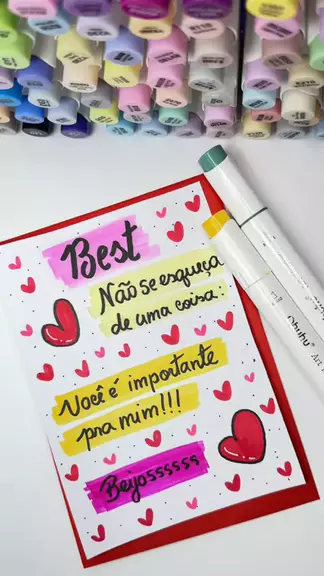 Best
Não se esqueça
de uma coisa:
Você é importante
pra mim!!!
Beijossssss
Ohuhu